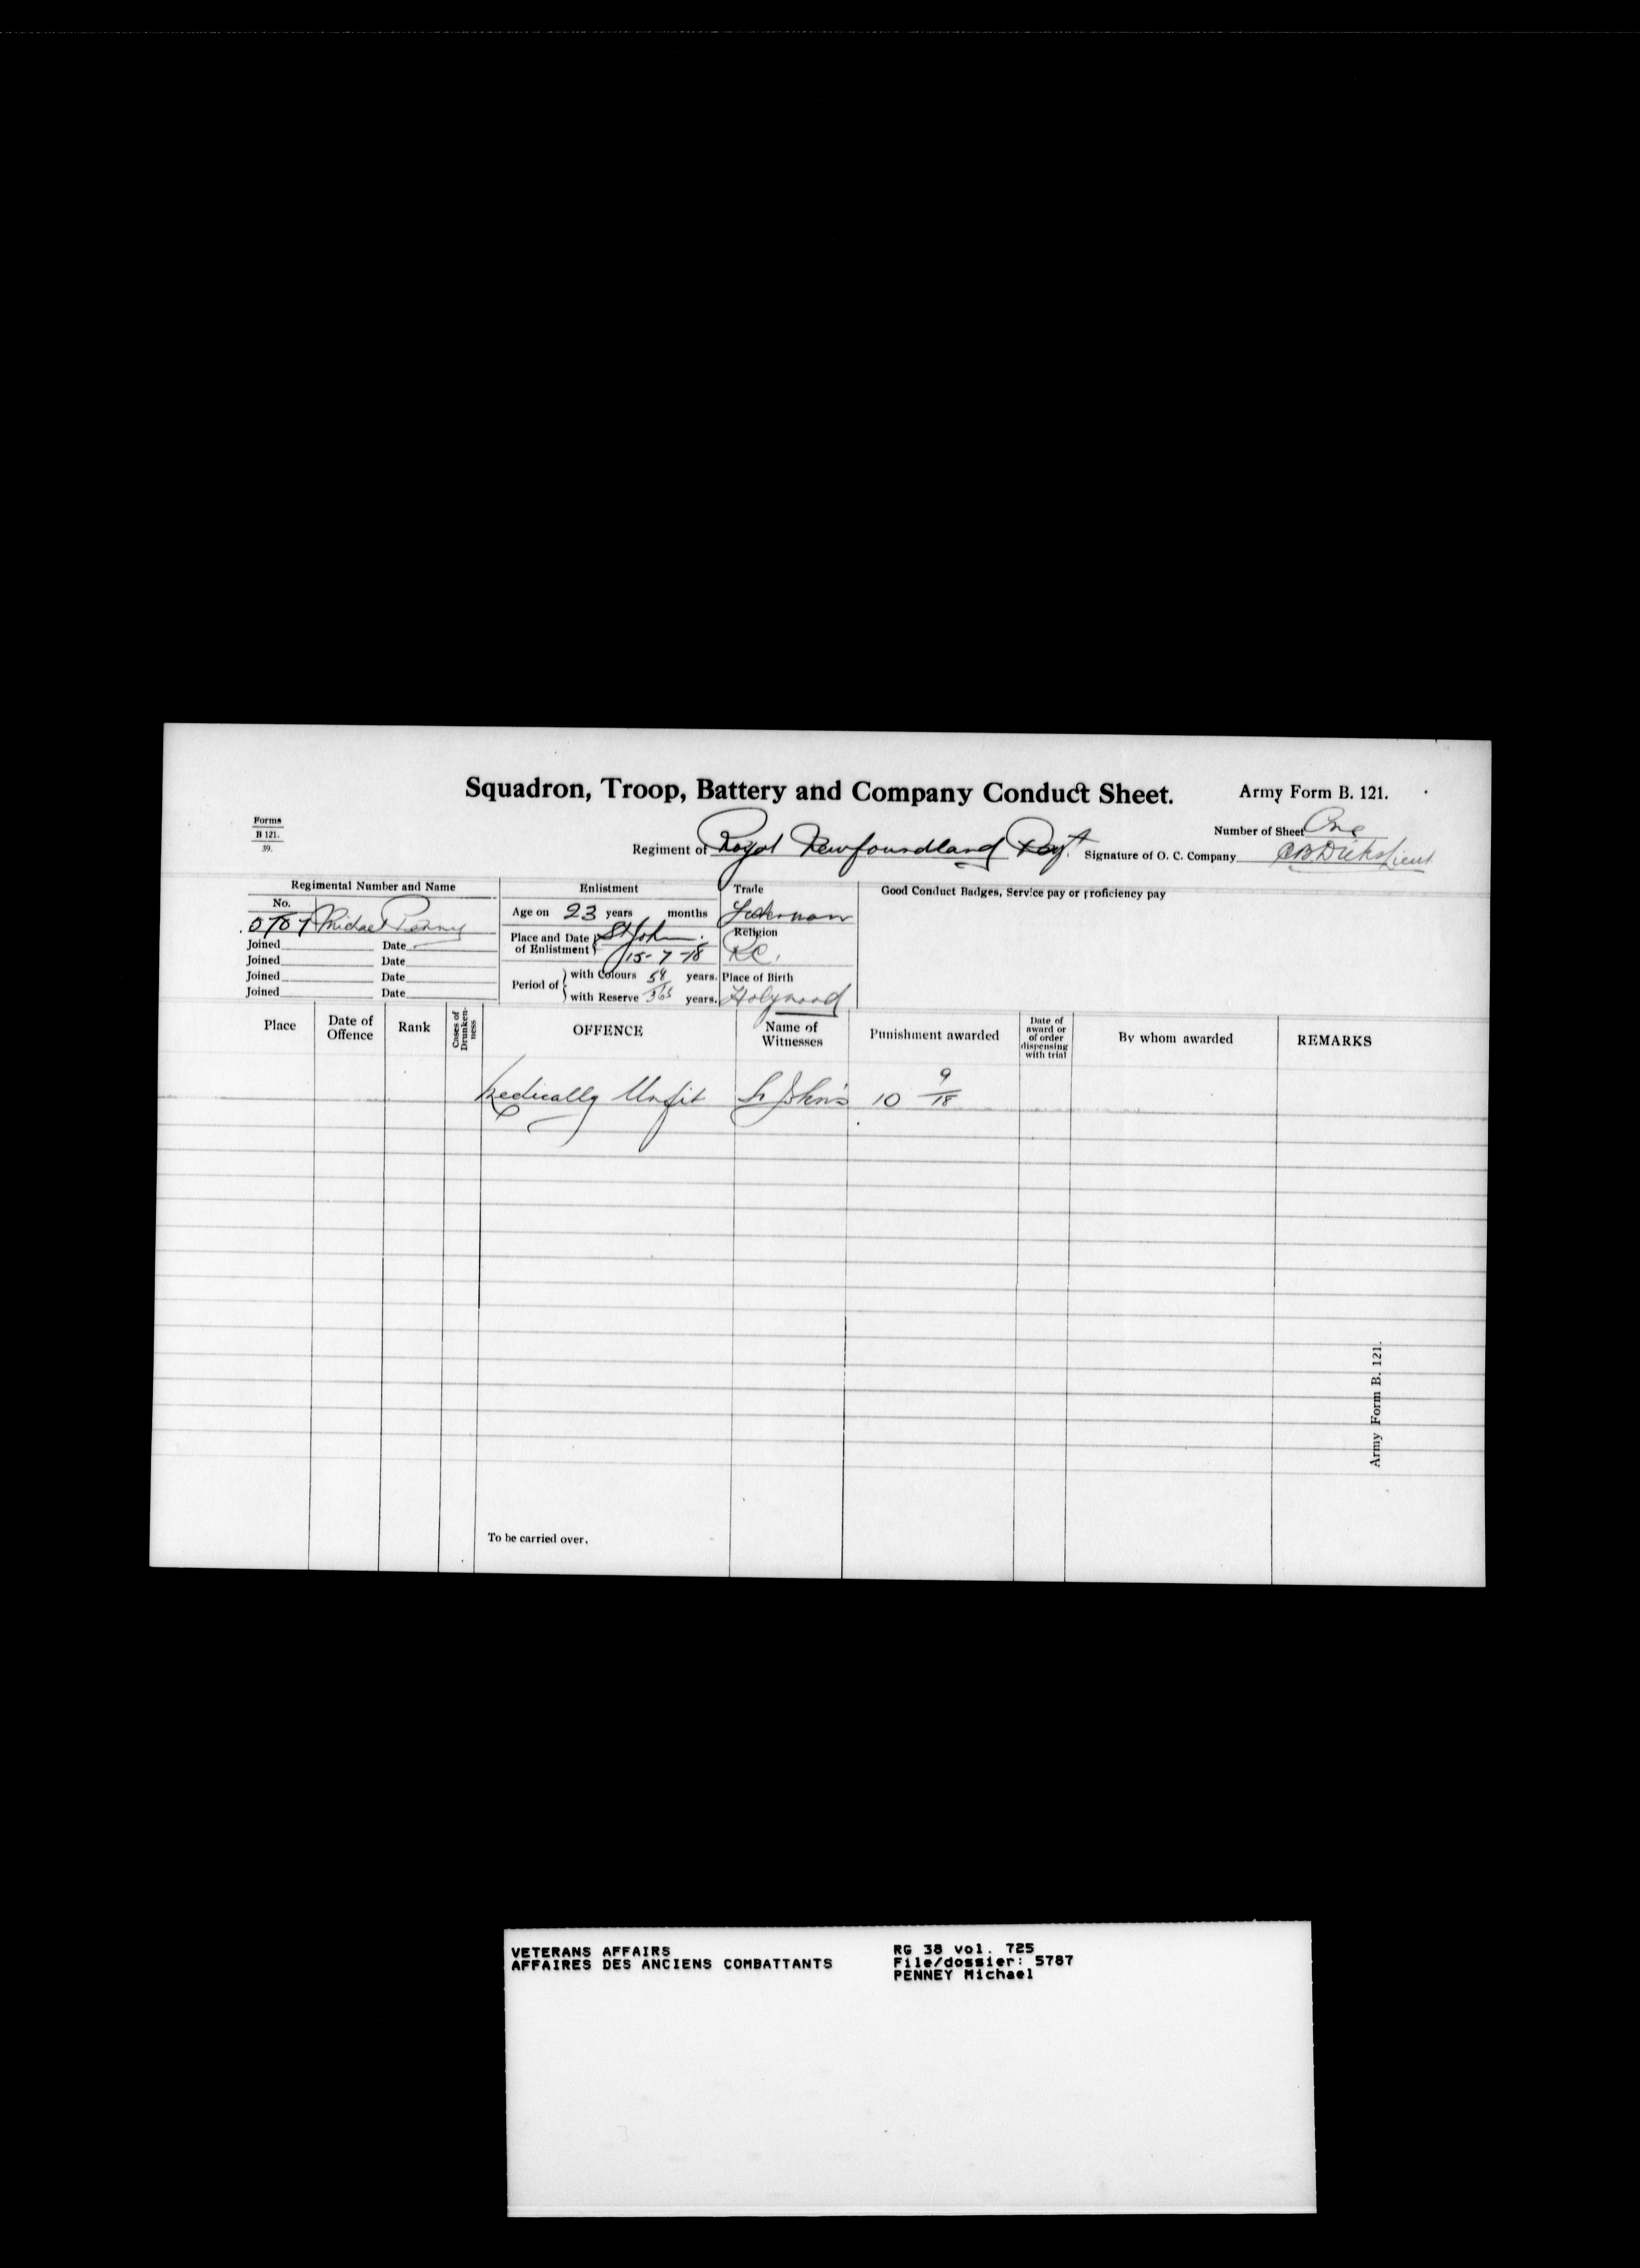 Squadron, Troop, Battery and Company Conduct Sheet.
Army Form B. 121.
Forms
B 121.
39.
Number of Sheet One
Regiment of Royal Newfoundland Regt.
Signature of O. C. Company Lieut
Regimental Number and Name
No.
Michael Penny
Joined Date
Joined Date
Joined Date
Joined Date
Enlistment
Age on 23 years months
Place and Date of Enlistment St John
15-7-18
Period of with Colours 54 years.
with Reserve 365 years.
Trade
Religion
RC.
Place of Birth
Holyrood
Good Conduct Badges, Service pay or proficiency pay
Place
Date of Offence
Rank
Cases of Drunken-ness
OFFENCE
Name of Witnesses
Punishment awarded
Date of award or of order dispensing with trial
By whom awarded
REMARKS
Medically Unfit St John's 10 9/18
To be carried over.
Army Form B. 121.
VETERANS AFFAIRS
AFFAIRES DES ANCIENS COMBATTANTS
RG 38 vol. 725
File/dossier: 5787
PENNEY Michael